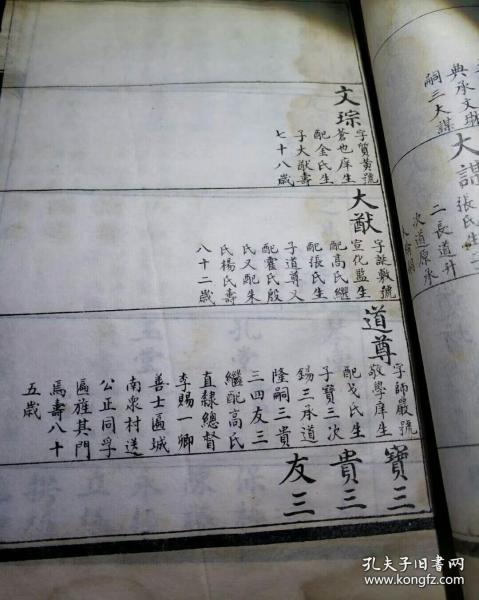 典承文琳
嗣三大謀
大謀
張氏生二
二長道升
次道原承
文琮
字質黃號
蒼也庠生
配金氏生
子大猷壽
七十八歲
大猷
字誌敷號
宣化監生
配高氏繼
配張氏生
子道尊又
配霍氏殷
氏又配朱
氏楊氏壽
八十二歲
道尊
字師嚴號
敬學庠生
配戈氏生
子寶三次
錫三承道
隆嗣三貴
三四友三
繼配高氏
直隸總督
李賜一鄉
善士匾城
南衆村送
公正同孚
匾旌其門
焉壽八十
五歲
寶三
貴三
友三
孔夫子旧书网
www.kongfz.com